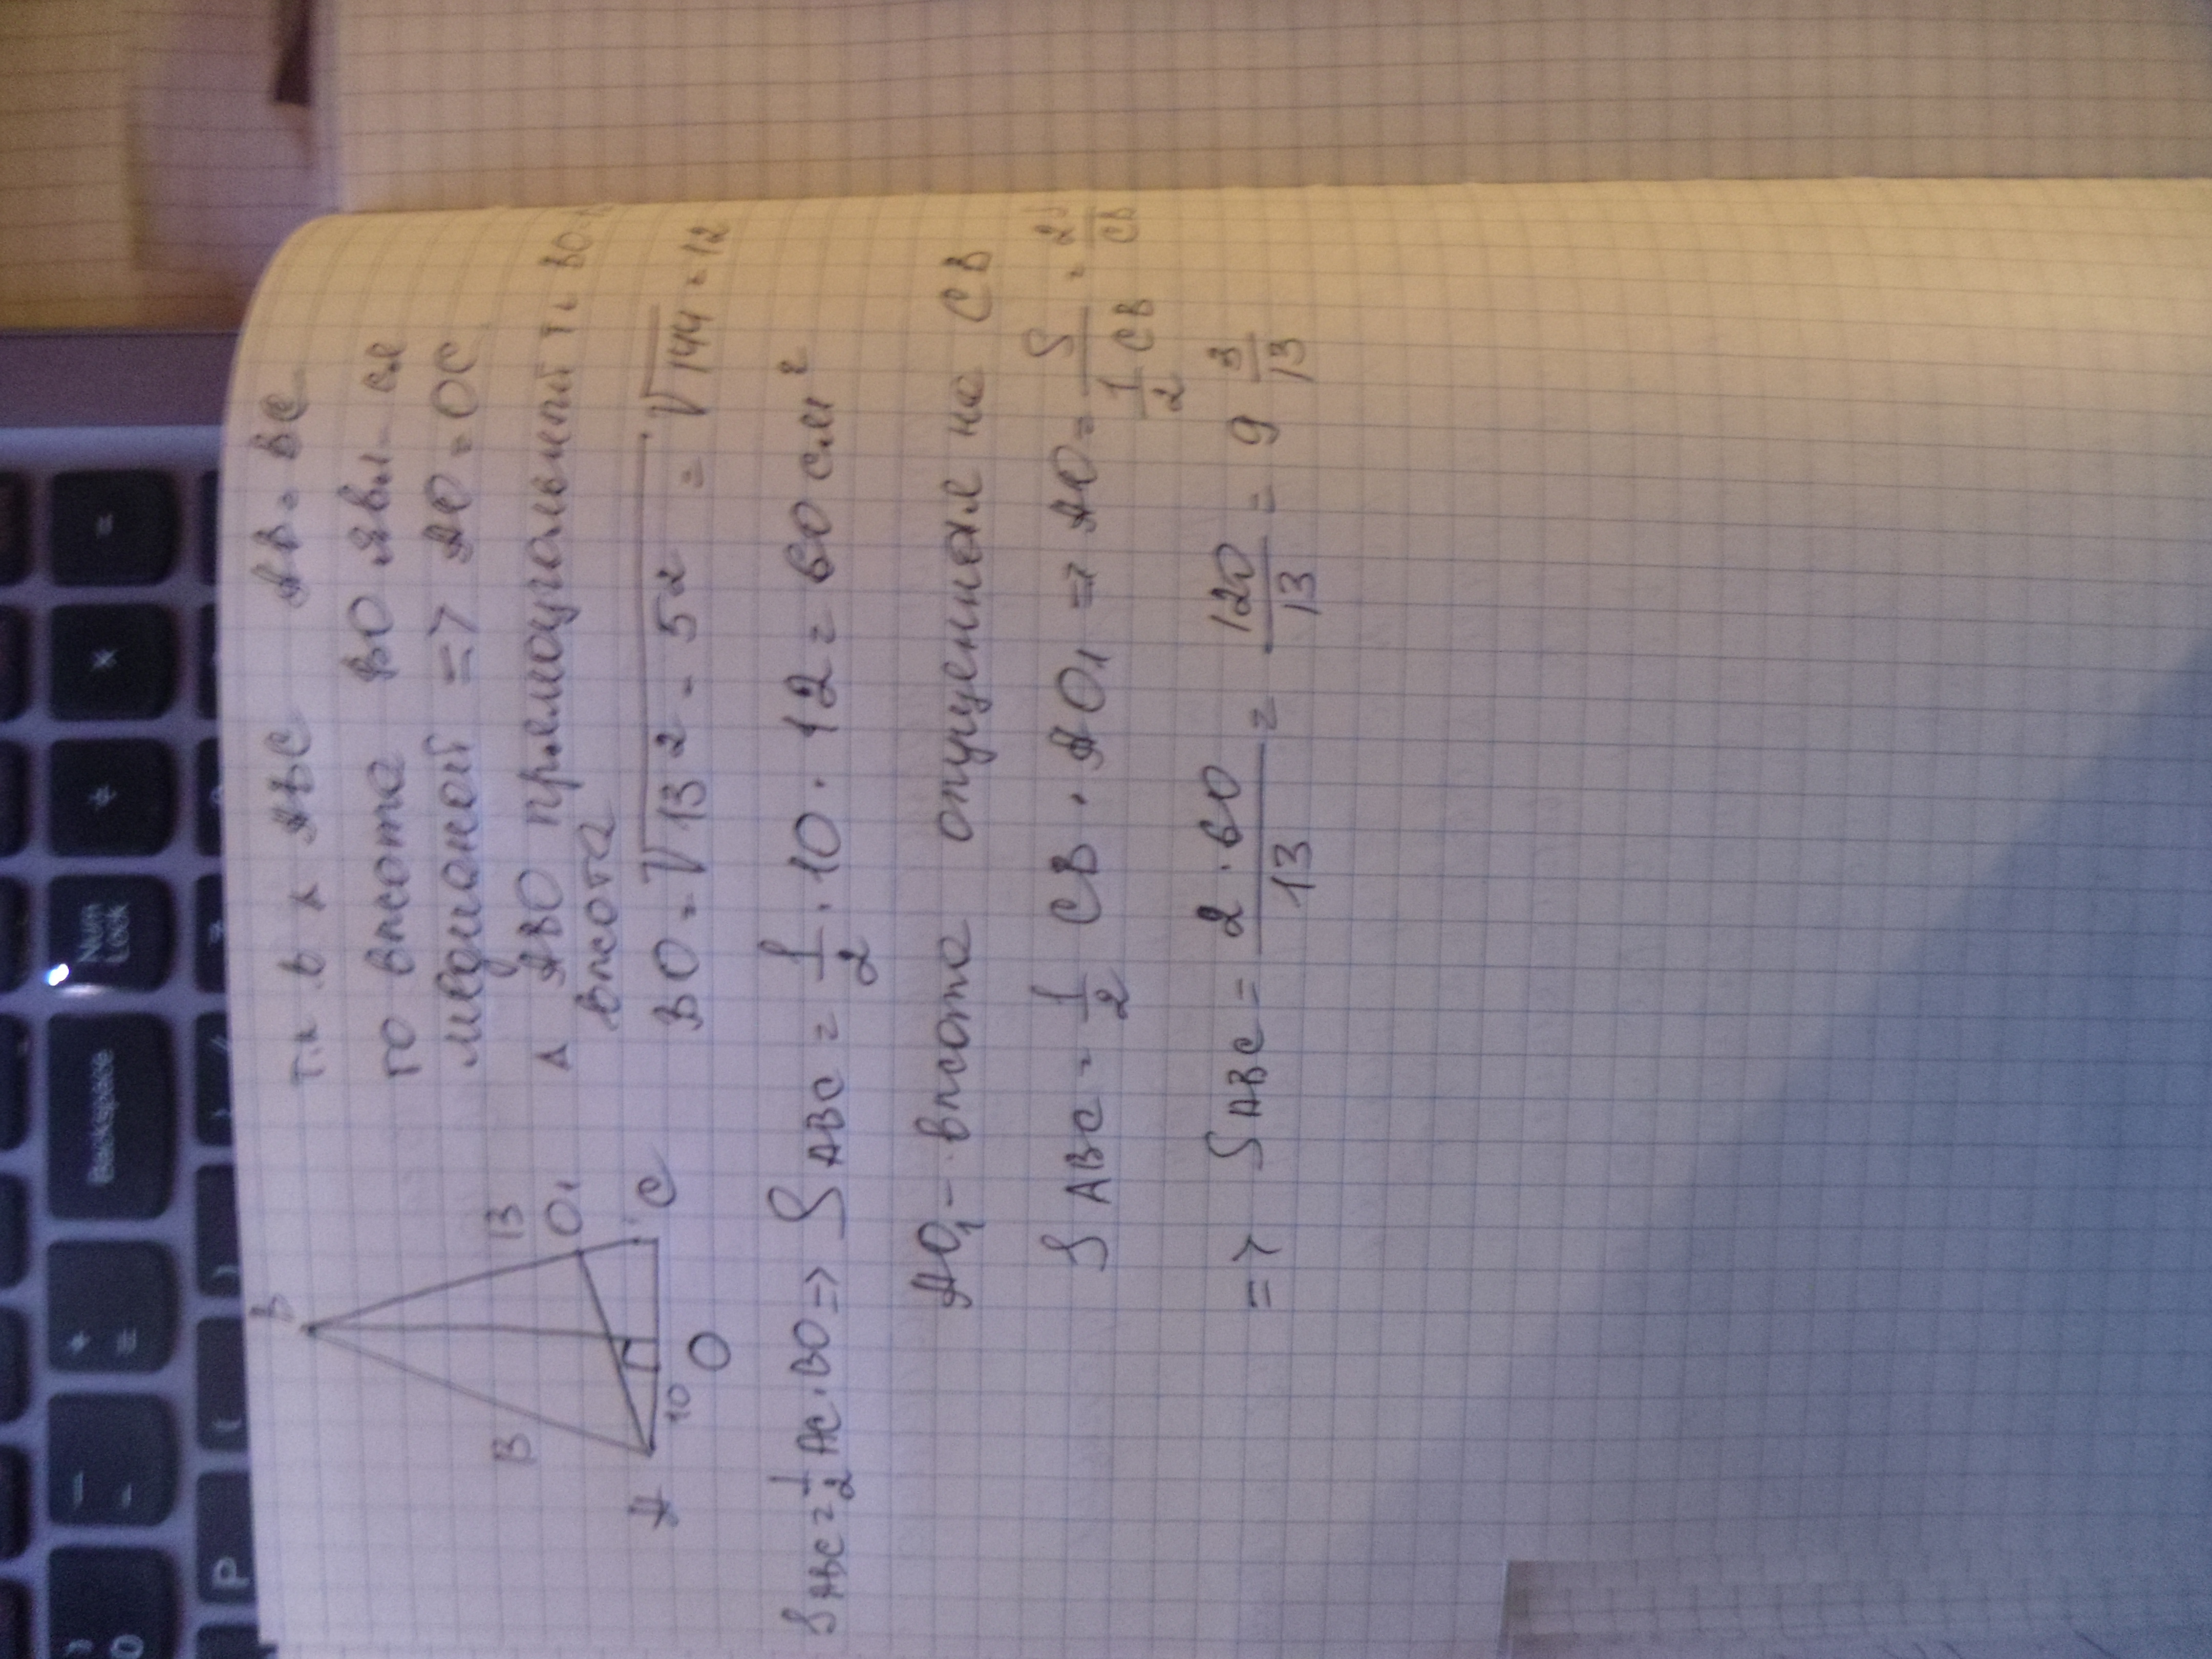 т.к в Δ ABC AB = BC
то высота BO явл-ся
медианой => AO = OC
Δ ABO прямоугольный т.к BO
высота
BO = √13² - 5² = √144 = 12
B
13
13
O₁
A
10
C
O
S ABC = 1/2 AC · BO => S ABC = 1/2 · 10 · 12 = 60 см²
AO₁ - высота опущенная на CB
S ABC = 1/2 CB · AO₁ => AO = S / 1/2 CB = 2S / CB
=> S ABC = 2 · 60 / 13 = 120 / 13 = 9 3/13
Backspace
Num Lock
P